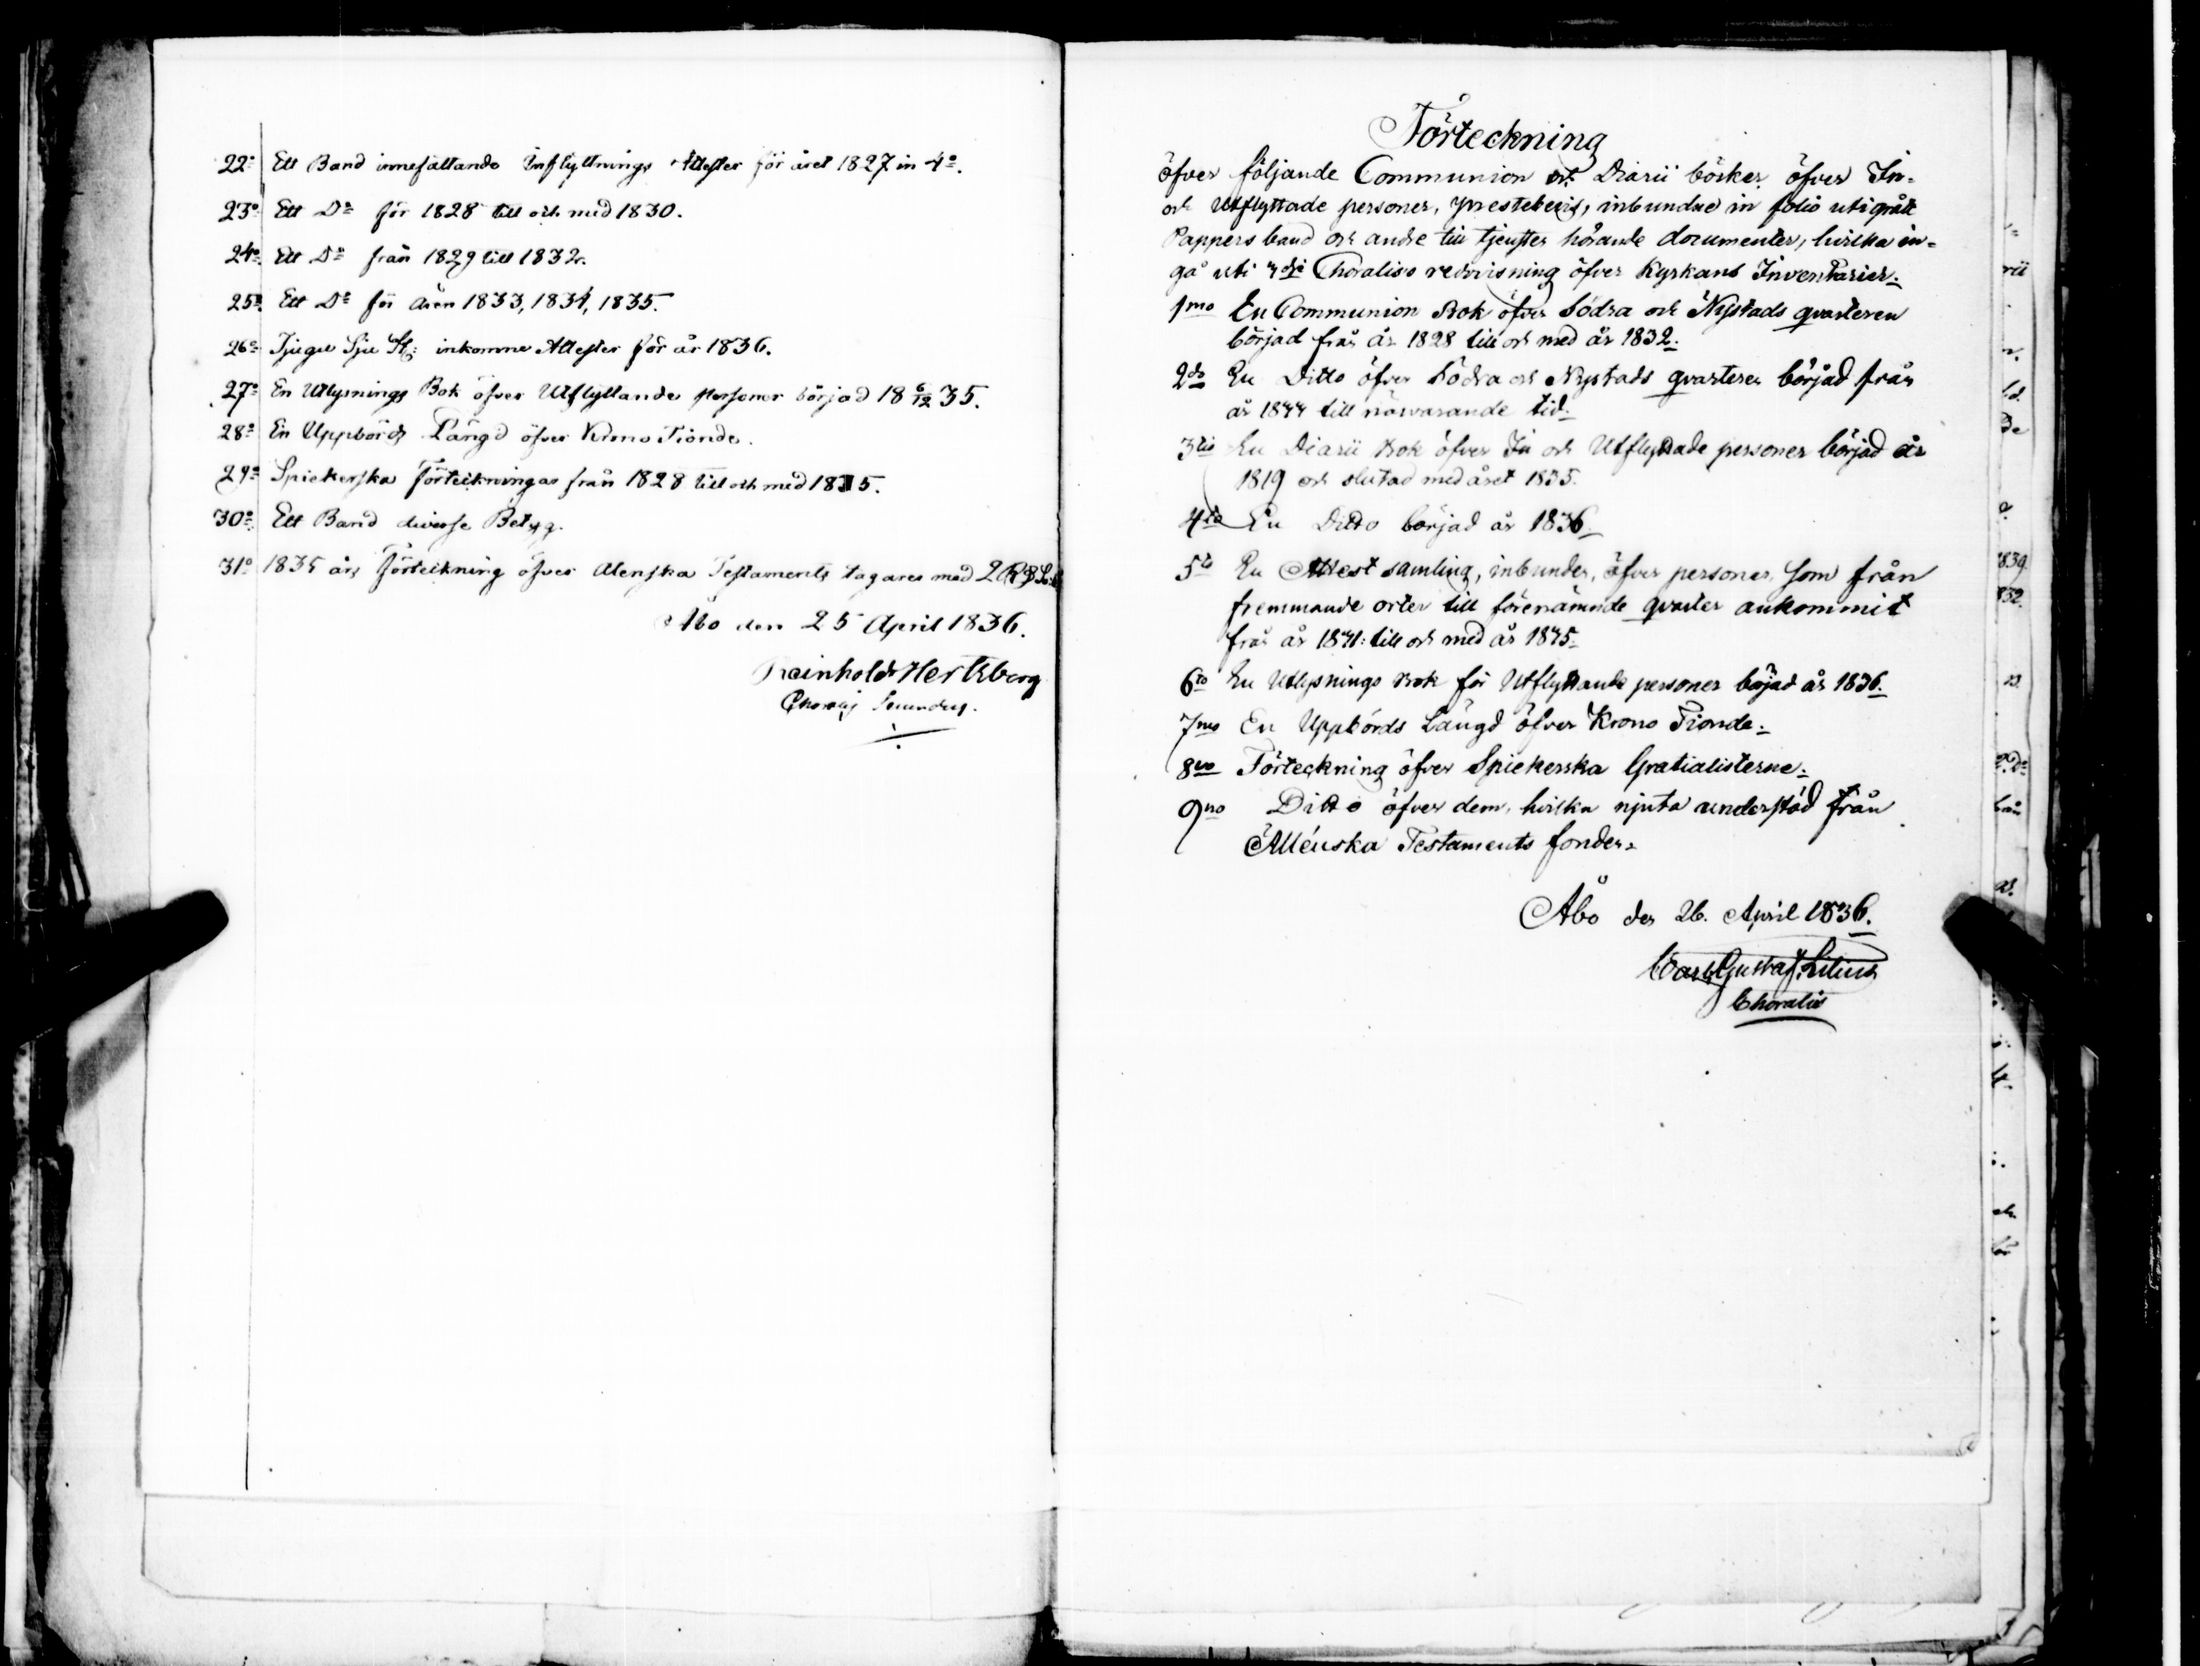 22o Ett Band innefattande Inflyttnings Attester för året 1827 in 4o.
23o Ett Do för 1828 till och med 1830.
24o. Ett Do från 1829 till 1832.
25o. Ett Do för åren 1833, 1834, 1835.
26o Tjugu Sju St: inkomne Attester för år 1836.
27o En Utlysnings Bok öfver Utflyttande personer börjad 18 6/12 35.
28o En Uppbörds Längd öfver Krono Tionde.
29o Spiekerska Förteckningar från 1828 till och med 1835.
30o Ett Band diverse Betyg.
31o 1835 års Förteckning öfver Alenska Testaments tagares med 2
Åbo den 25 April 1836.
Reinhold Hertzberg
Choralis Secundus.
Förteckning
öfver följande Communion och Diarii böcker öfver In-
och Utflyttade personer, prestebevis, inbundne in folio uti grått
Pappers band och andre till tjensten hörande documenter, hvilka in-
gå uti Choralis redovisning öfver Kyrkans Inventarier.
1mo En Communion Bok öfver Södra och Nystads qvarteren
börjad från år 1828 till och med år 1832.
2do En Ditto öfver Södra och Nystads qvarteren börjad från
år 1833 till närvarande tid.
3tio En Diarii Bok öfver In och Utflyttade personer börjad år
1819 och slutad med året 1835.
4to En Ditto börjad år 1836.
5to En Attest samling, inbunden, öfver personer, som från
fremmande orter till förenämnde qvarter ankommit
från år 1831: till och med år 1835.
6to En Utlysnings Bok för Utflyttande personer börjad år 1836.
7mo En Uppbörds Längd öfver Krono Tionde.
8vo Förteckning öfver Spiekerska Gratialisterne.
9no Ditto öfver dem, hvilka njuta understöd från
Allénska Testaments fonden.
Åbo den 26. April 1836.
Carl Gustaf Lilius
Choralis